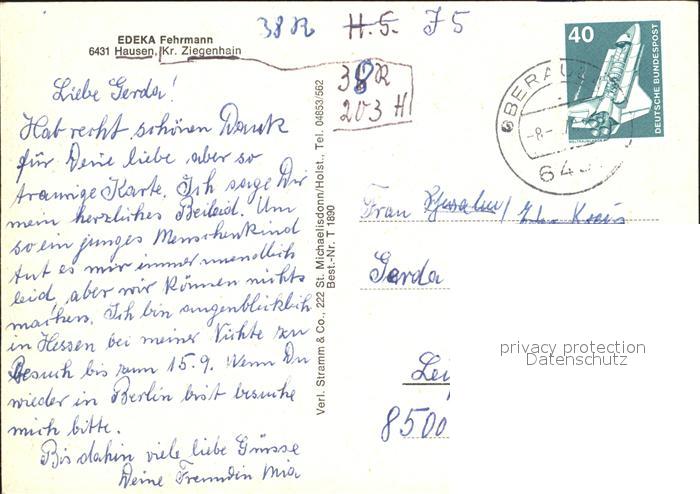 EDEKA Fehrmann
6431 Hausen, Kr. Ziegenhain
38 R H. 5. J 5
38 R
203 H
40
DEUTSCHE BUNDESPOST
OBERAUL
-8.-
643
Liebe Gerda!
Hab recht schönen Dank
für Deine liebe aber so
traurige Karte. Ich sage Dir
mein herzliches Beileid. Um
so ein junges Menschenkind
tut es mir immer unendlich
leid, aber wir können nichts
machen. Ich bin augenblicklich
in Hessen bei meiner Nichte zu
Besuch bis zum 15.9. Wenn Du
wieder in Berlin bist besuche
mich bitte.
Bis dahin viele liebe Grüsse
Deine Freundin Mia
Verl. Stramm & Co., 222 St. Michaelisdonn/Holst., Tel. 04853/562
Best.-Nr. T 1890
Frau
Gerda
privacy protection
Datenschutz
Lei
8500